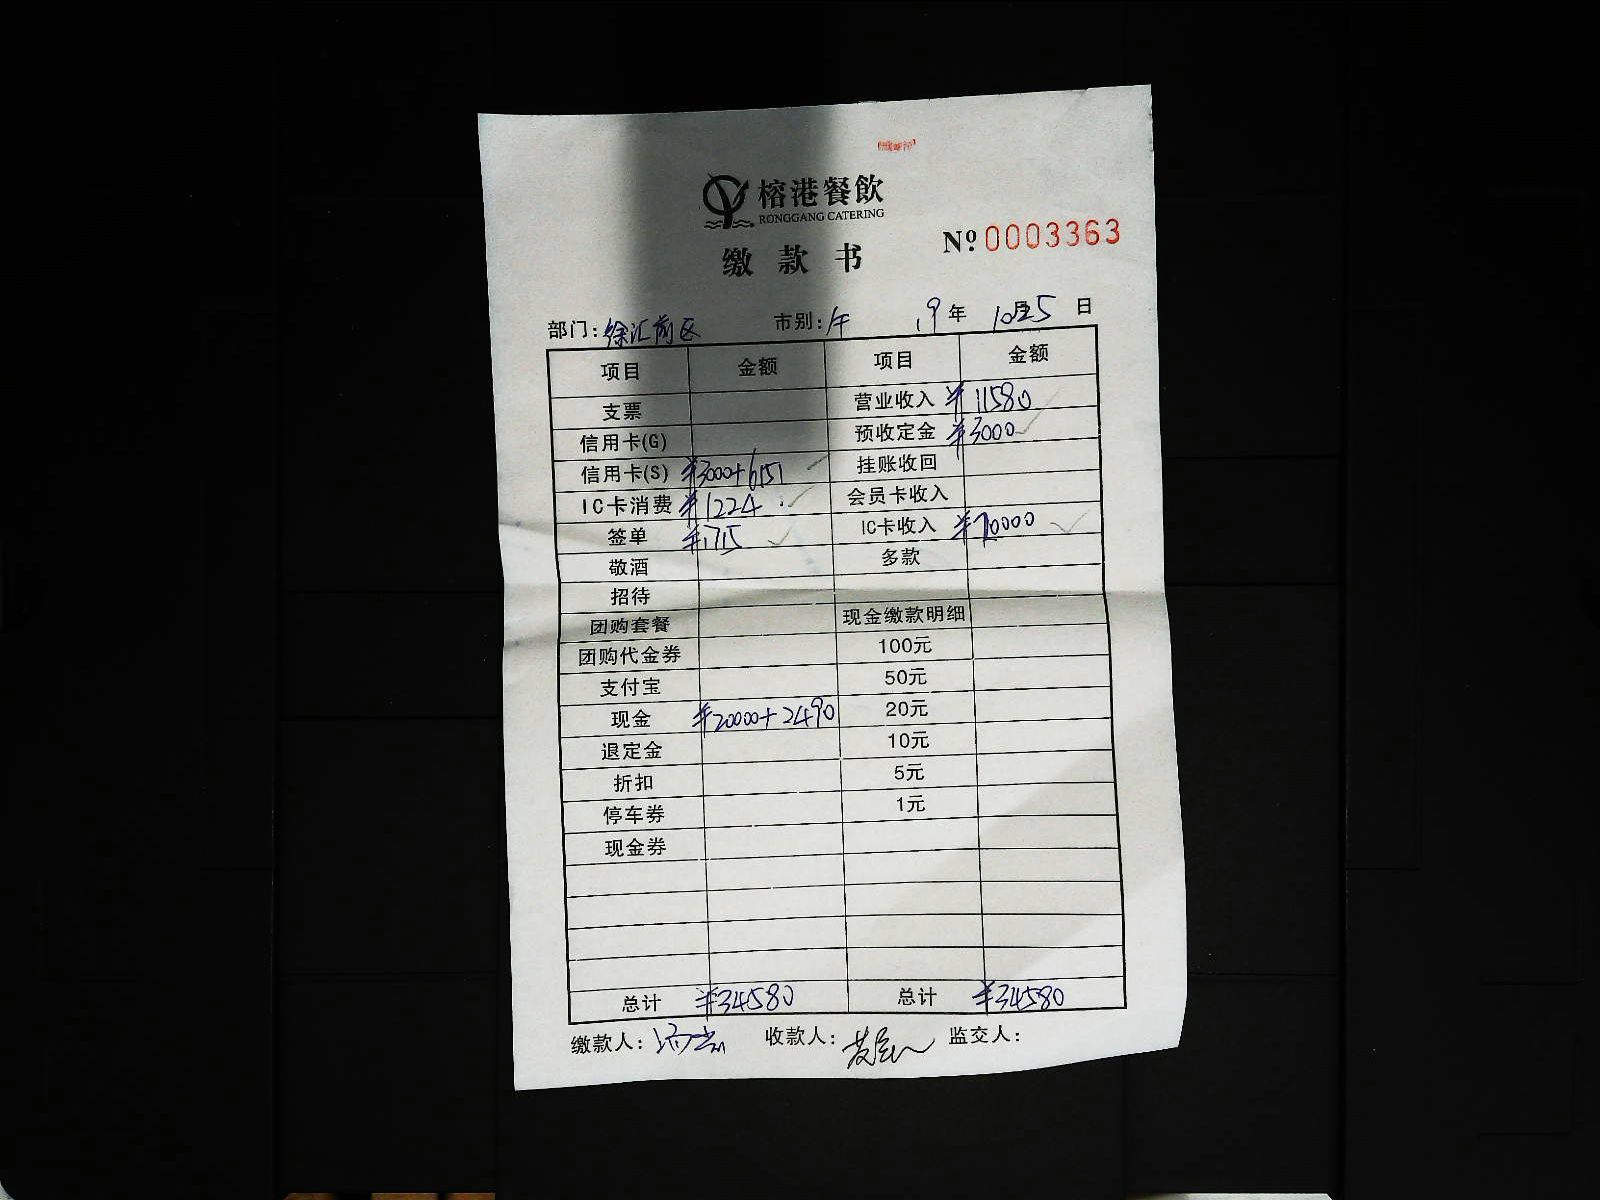 榕港餐飲
RONGGANG CATERING
缴款书
Nº 0003363
部门: 徐汇前区 市别: 午 19年 10月25日
项目 金额 项目 金额
支票 营业收入 ¥11580
信用卡(G) 预收定金 ¥3000
信用卡(S) ¥3000+6151 挂账收回
IC卡消费 ¥1224 会员卡收入
签单 ¥1715 IC卡收入 ¥20000
敬酒 多款
招待
团购套餐 现金缴款明细
团购代金券 100元
支付宝 50元
现金 ¥20000+2490 20元
退定金 10元
折扣 5元
停车券 1元
现金券
总计 ¥34580 总计 ¥34580
缴款人: 收款人: 监交人: